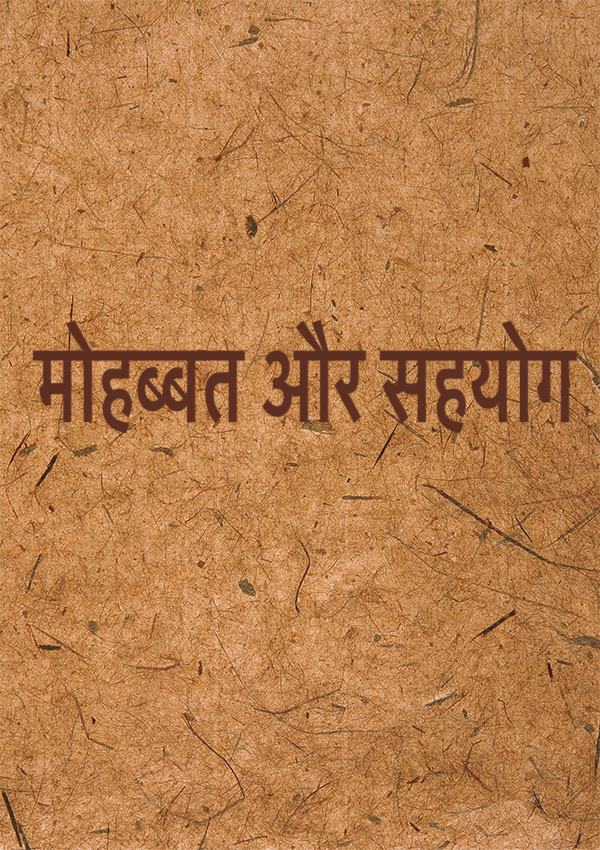 मोहब्बत और सहयोग